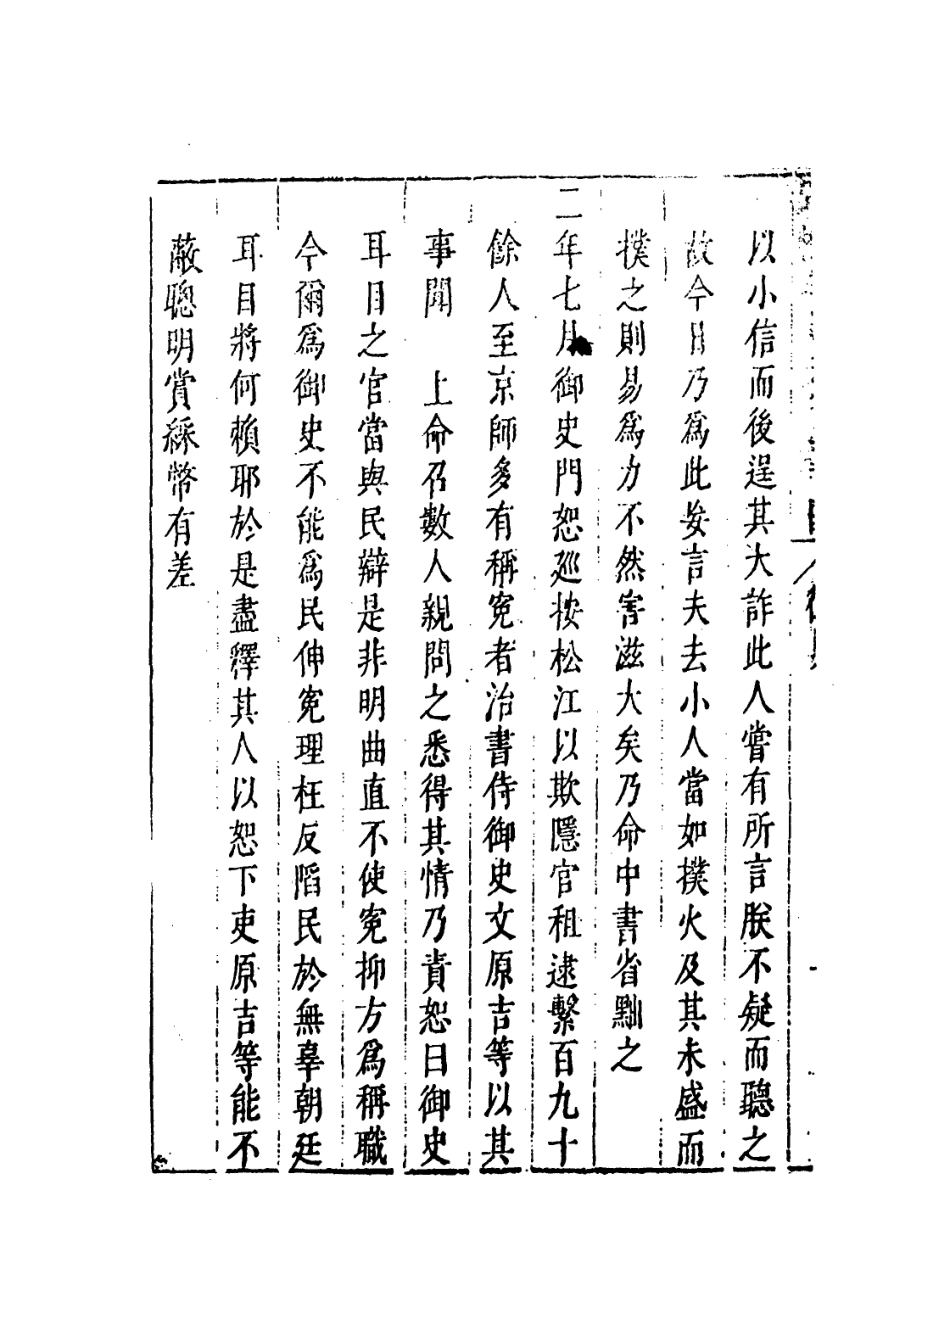 以小信而後逞其大詐此人嘗有所言朕不疑而聽之
故今日乃爲此妄言夫去小人當如撲火及其未盛而
撲之則易爲力不然害滋大矣乃命中書省黜之
二年七月御史門恕廵按松江以欺隱官租逮繫百九十
餘人至京師多有稱寃者治書侍御史文原吉等以其
事聞　上命召數人親問之悉得其情乃責恕曰御史
耳目之官當與民辯是非明曲直不使寃抑方爲稱職
今爾爲御史不能爲民伸寃理枉反陷民於無辜朝廷
耳目將何賴耶於是盡釋其人以恕下吏原吉等能不
蔽聰明賞綵幣有差